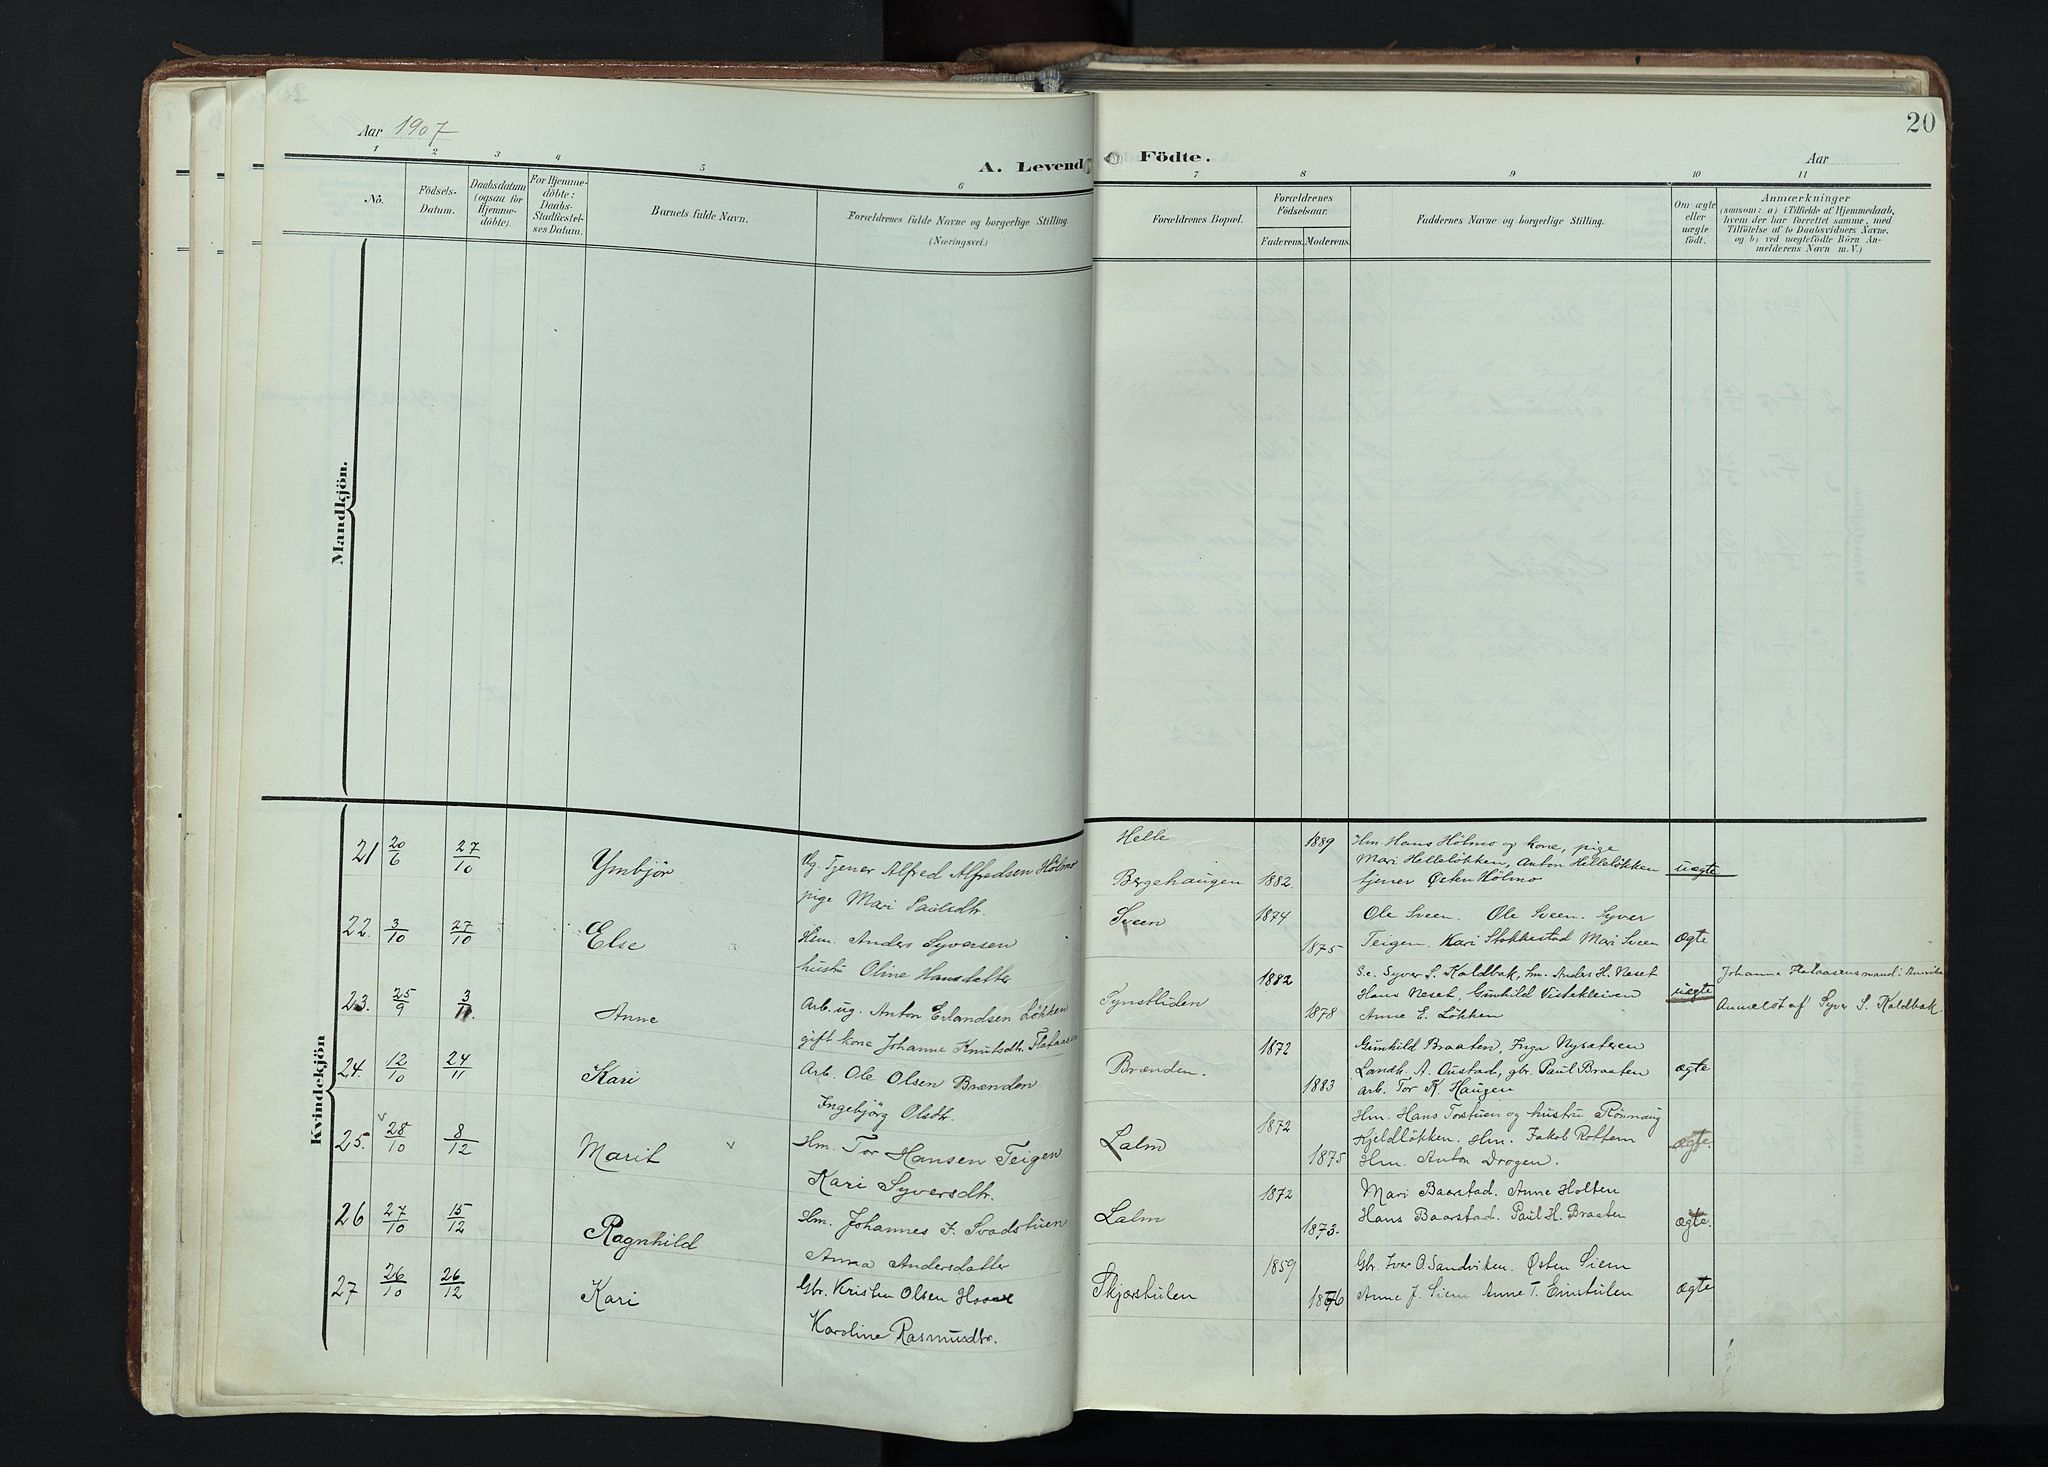 Aar 1907
20
A. Levende Födte.
Aar
1 2 3 4 5 6 7 8 9 10 11
No.
Födsels-
Datum.
Daabsdatum
(ogsaa for
Hjemme-
döbte).
For Hjemme-
döbte:
Daabs-
Stadfæstel-
ses Datum.
Barnets fulde Navn.
Forældrenes fulde Navne og borgerlige Stilling.
(Næringsvei.)
Forældrenes Bopæl.
Forældrenes
Födselsaar.
Faderens.
Moderens.
Faddernes Navne og borgerlige Stilling.
Om ægte
eller
uægte
födt.
Anmærkninger
(saasom: a) i Tilfælde af Hjemmedaab,
hvem der har forrettet samme, med
Tilföielse af to Daabsvidners Navne.
og b) ved uægtefödte Börn An-
melderens Navn m. V.)
Mandkjön.
Kvindekjön
21 20/6 27/10 Ymbjör
Ug. Tjener Alfred Alfredsen Hölmo
pige Mari Paulsdtr.
Helle
Bergehaugen 1882. 1889
Hm Hans Hölmo og kone, pige
Mari Helleløkken, Anton Helleløkken
tjener Østen Hölmo
uægte
22. 3/10 27/10 Else
Hsm. Anders Syversen
hustru Oline Hansdatter
Sveen 1874 1875
Ole Sveen. Ole Sveen. Syver
Teigen. Kari Stokkestad Mari Sveen
ægte
23. 25/9 3/11. Anne
Arb. ug. Anton Erlandsen Løkken
gift kone Johanne Knutsdtr. Flataasen
Tynstliden 1882 1878
Se. Syver S. Kaldbak, Sm. Anders H. Neset
Hans Neset, Gunhild Vistekleiven
Anne E. Løkken
uægte
Johanne Flataasens mand i Amerika
Anmeldt af Syver S. Kaldbak.
24. 12/10 24/11 Kari
Arb. Ole Olsen Brænden
Ingebjörg Olsdtr.
Brænden. 1872 1883
Gunhild Braaten, Inga Nysæteren
Landh. A. Oustad, gbr. Paul Braaten
arb. Tor K. Haugen
ægte
25. 28/10 8/12 Marit
Hm. Tor Hansen Teigen
Kari Syversdtr.
Lalm 1872 1875
Hm. Hans Torstuen og hustru Rönnaug
Kjeldløkken. Hm. Jakob Rottem
Hm. Anton Drogen.
ægte.
26 27/10 15/12 Ragnhild
Hm. Johannes J. Svadstuen
Anna Andersdatter
Lalm 1872 1873.
Mari Baarstad. Anne Holten
Hans Baarstad. Paul H. Braaten
ægte.
27 26/10 26/12 Kari
Gbr. Kristen Olsen
Karoline Rasmusdtr.
Skjærstulen 1859 1876
Gbr. Iver O. Sandviken. Østen Siem
Anne J. Siem Anne T. Einstulen
ægte